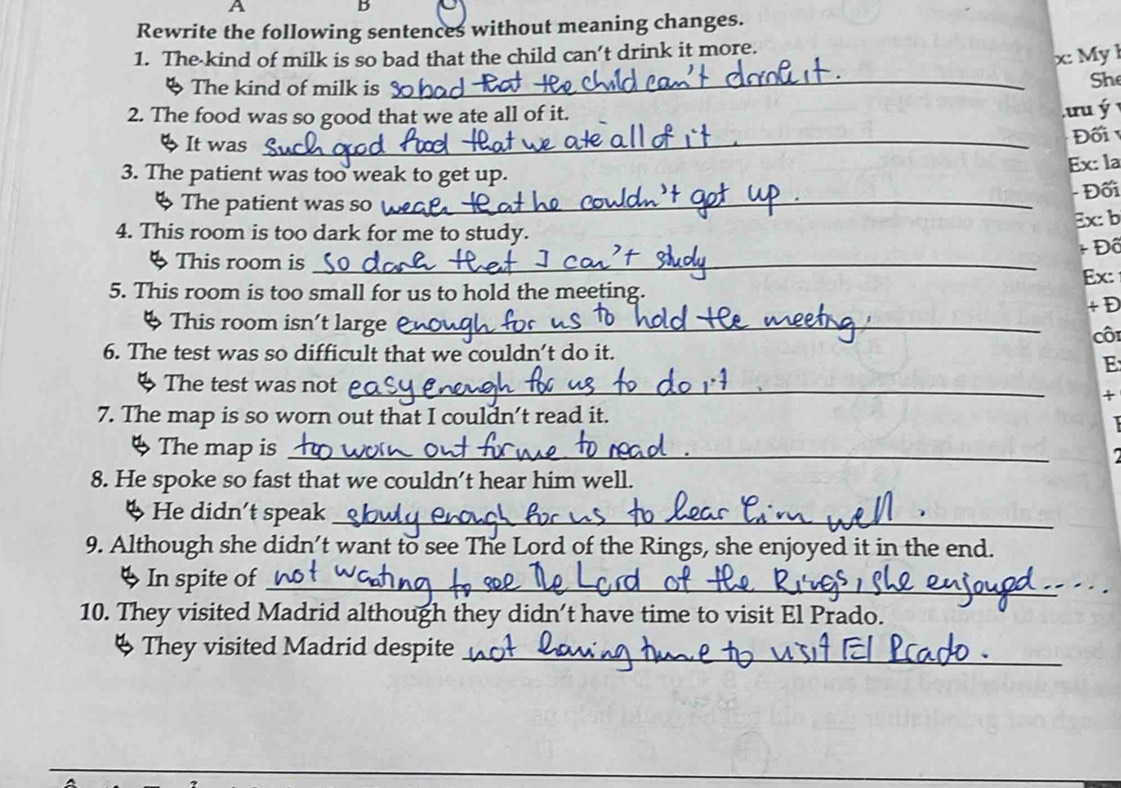 A B C
Rewrite the following sentences without meaning changes.
1. The kind of milk is so bad that the child can't drink it more.
The kind of milk is so bad that the child can't drink it.
2. The food was so good that we ate all of it.
It was such good food that we ate all of it.
3. The patient was too weak to get up.
The patient was so weak that he couldn't get up.
4. This room is too dark for me to study.
This room is so dark that I can't study
5. This room is too small for us to hold the meeting.
This room isn't large enough for us to hold the meeting
6. The test was so difficult that we couldn't do it.
The test was not easy enough for us to do it.
7. The map is so worn out that I couldn't read it.
The map is too worn out for me to read.
8. He spoke so fast that we couldn't hear him well.
He didn't speak slowly enough for us to hear him well.
9. Although she didn't want to see The Lord of the Rings, she enjoyed it in the end.
In spite of not wanting to see The Lord of the Rings, she enjoyed.....
10. They visited Madrid although they didn't have time to visit El Prado.
They visited Madrid despite not having time to visit El Prado.
x: My
She
ưu ý
Đối
Ex: la
- Đối
Ex: b
+ Đố
Ex:
+ Đ
E
+